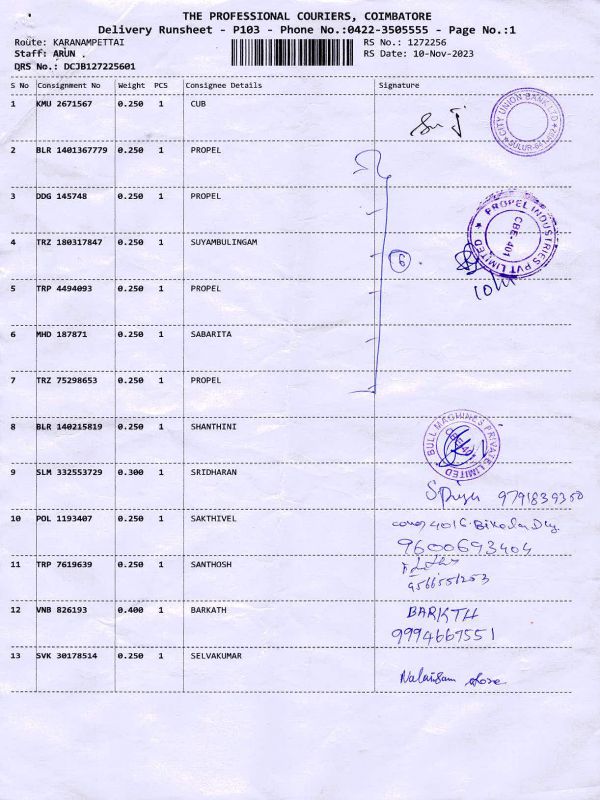 THE PROFESSIONAL COURIERS, COIMBATORE
Delivery Runsheet - P103 - Phone No.:0422-3505555 - Page No.:1
Route: KARANAMPETTAI RS No.: 1272256
Staff: ARUN . RS Date: 10-Nov-2023
DRS No.: DCJB127225601
S No Consignment No Weight PCS Consignee Details Signature
1 KMU 2671567 0.250 1 CUB
CITY UNION BANK LTD
2 BLR 1401367779 0.250 1 PROPEL
3 DDG 145748 0.250 1 PROPEL
PROPEL INDUSTRIES PVT LIMITED
CBE-401
4 TRZ 180317847 0.250 1 SUYAMBULINGAM
6
10/11
5 TRP 4494093 0.250 1 PROPEL
6 MHD 187871 0.250 1 SABARITA
7 TRZ 75298653 0.250 1 PROPEL
8 BLR 140215819 0.250 1 SHANTHINI
BULL MACHINES PRIVATE LIMITED
9 SLM 332553729 0.300 1 SRIDHARAN
9791839350
10 POL 1193407 0.250 1 SAKTHIVEL
9600693404
11 TRP 7619639 0.250 1 SANTHOSH
9566551253
12 VNB 826193 0.400 1 BARKATH
BARKTH
9994667551
13 SVK 30178514 0.250 1 SELVAKUMAR